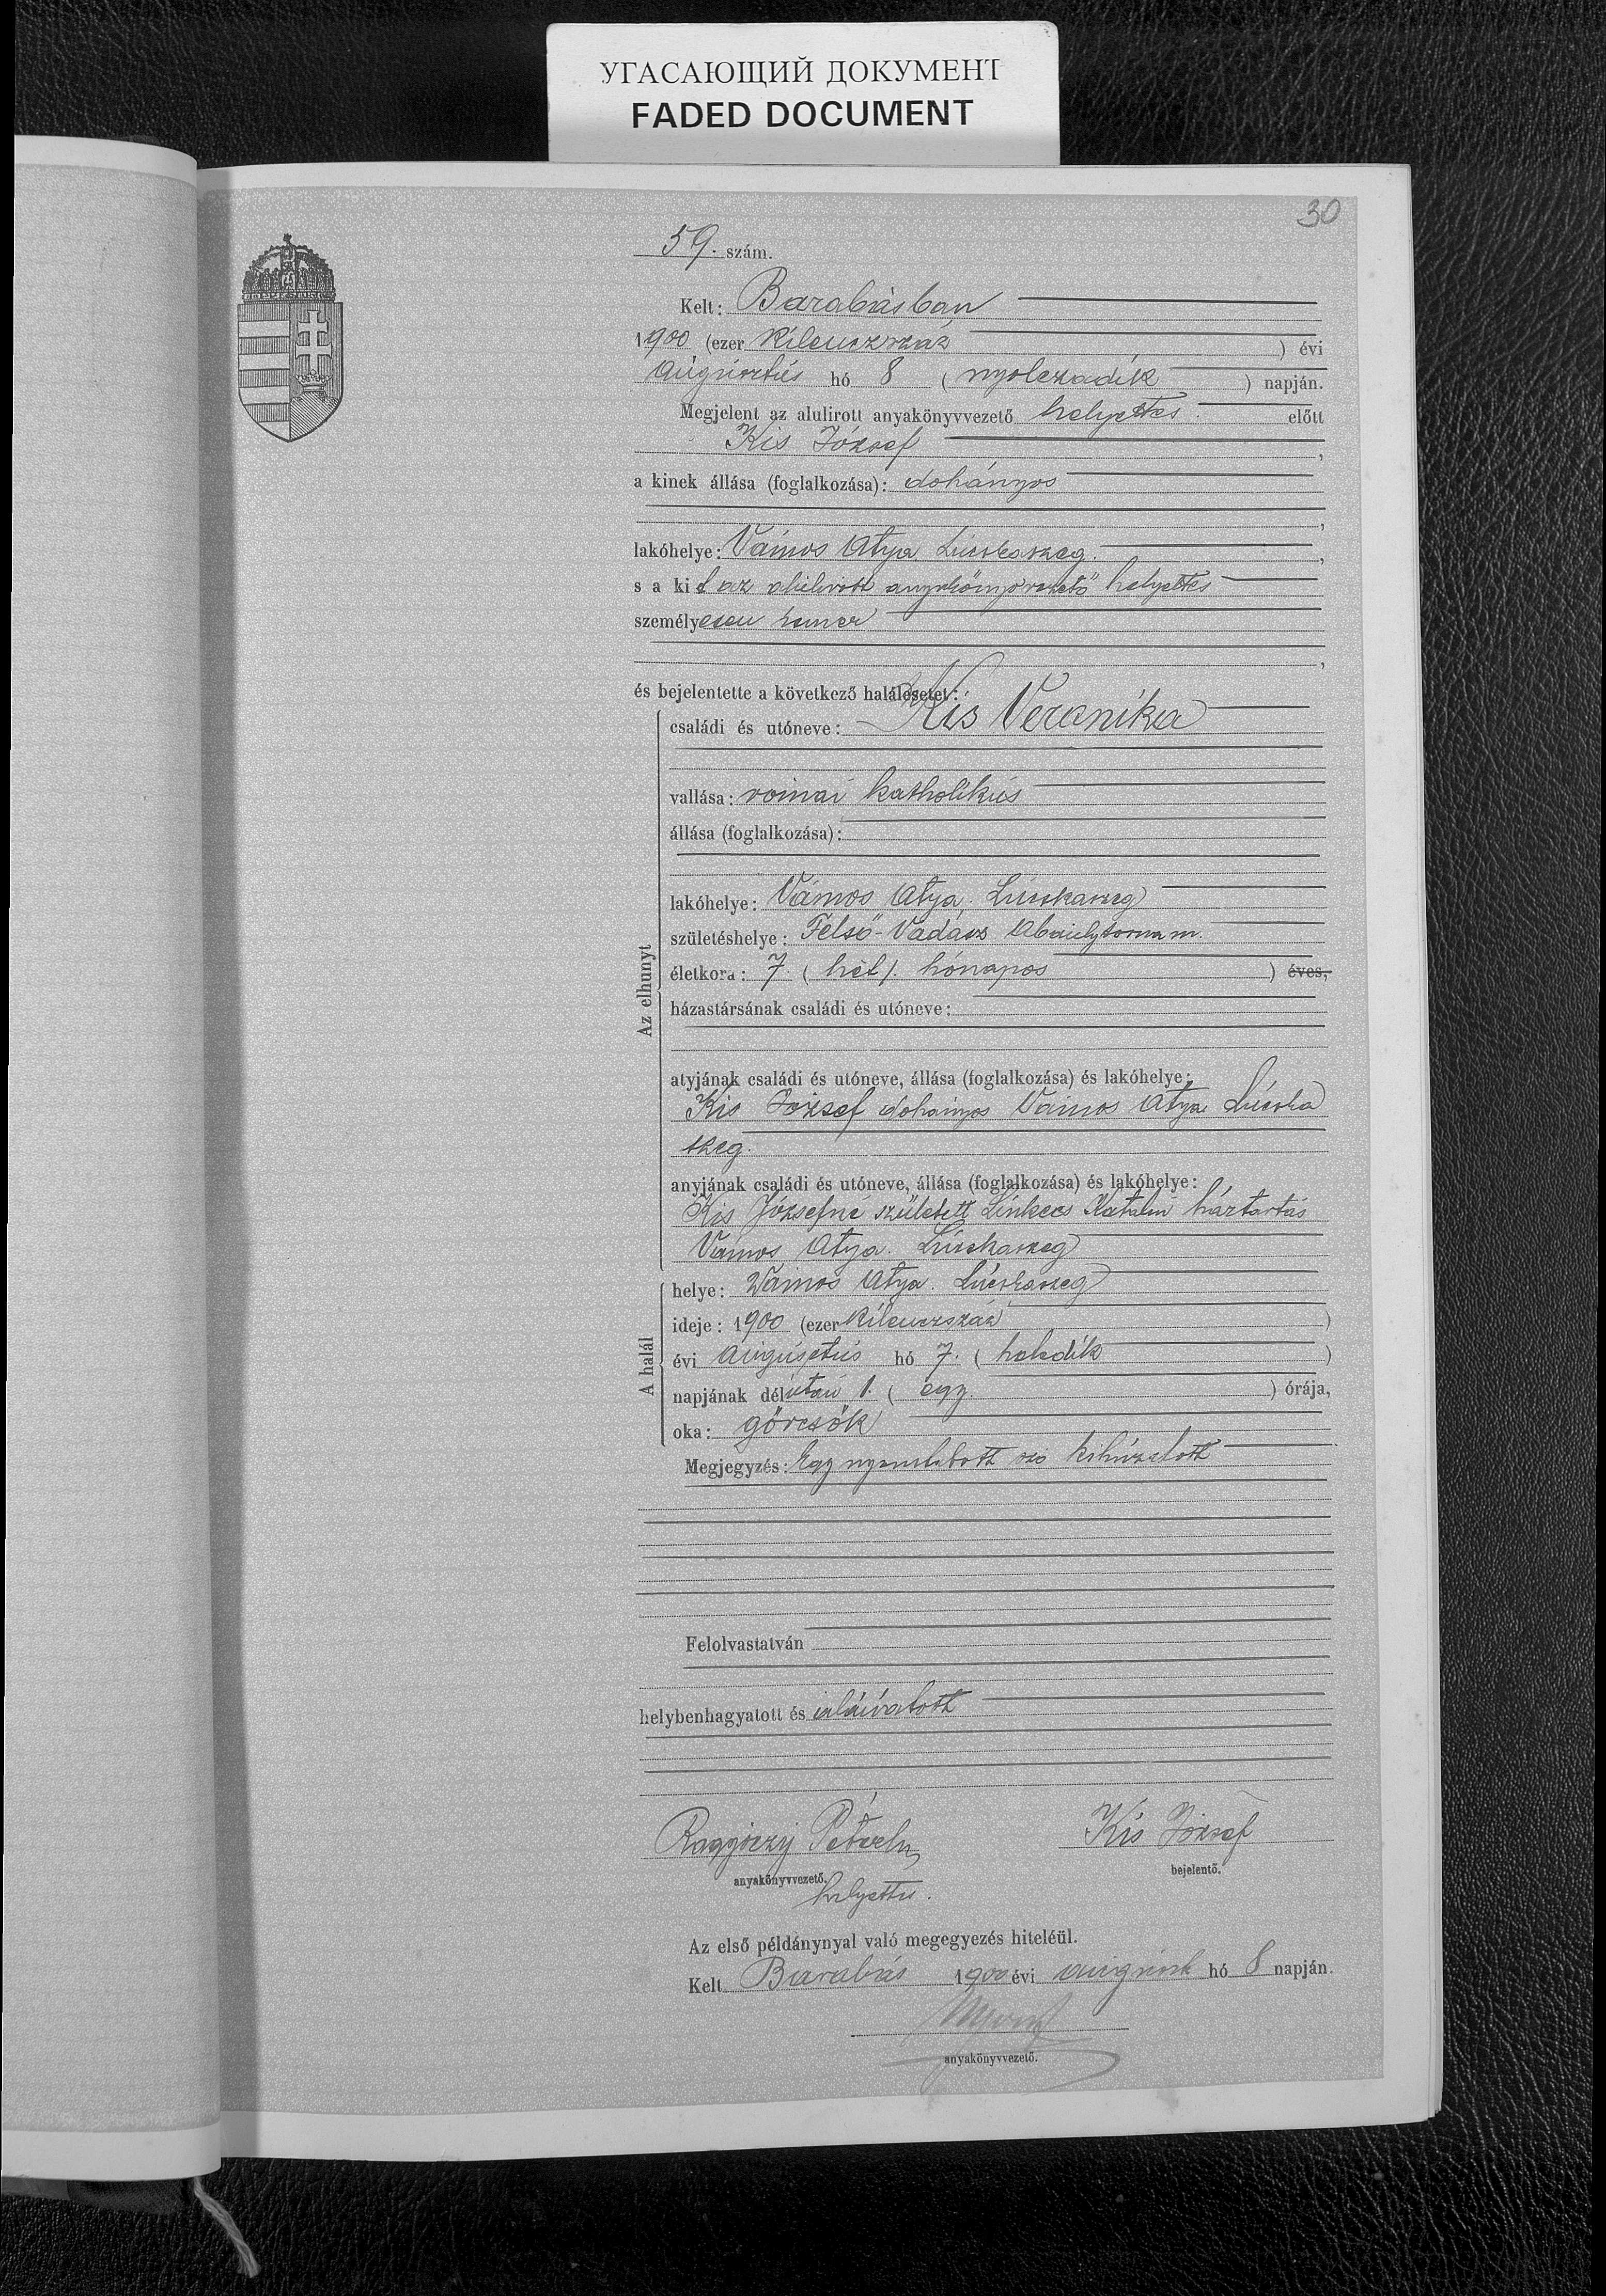 УГАСАЮЩИЙ ДОКУМЕНТ
FADED DOCUMENT
30
59. szám.
Kelt: Barabásban
1900 (ezer kilenczszáz ) évi
augusztus hó 8 (nyolczadik ) napján.
Megjelent az alulirott anyakönyvvezető helyettes előtt
Kis József ,
a kinek állása (foglalkozása): dohányos
,
lakóhelye: Vámos Atya Lúcskaszeg. ,
s a kit az alulirott anyakönyvvezető helyettes
személyesen ismer
,
és bejelentette a következő halálesetet:
családi és utóneve: Kis Veronika
vallása: római katholikus
állása (foglalkozása):
lakóhelye: Vámos Atya. Lúcskaszeg
születéshelye: Felső-Vadász Abaujtorna m.
életkora: 7. (hét). hónapos ) éves,
házastársának családi és utóneve:
atyjának családi és utóneve, állása (foglalkozása) és lakóhelye:
Kis József dohányos Vámos Atya Lúcska
szeg.
anyjának családi és utóneve, állása (foglalkozása) és lakóhelye:
Kis Józsefné született Katalin háztartás
Vámos Atya. Lúcskaszeg
Az elhunyt
helye: Vámos Atya. Lúcskaszeg
ideje: 1900 (ezer kilenczszáz )
évi augusztus hó 7. (hetedik )
napjának délután 1. (egy. ) órája,
oka: görcsök
A halál
Megjegyzés: Egy nyomtatott szó kihúzatott
Felolvastatván
helybenhagyatott és aláíratott
Péter Kis József
anyakönyvvezető. bejelentő.
helyettes.
Az első példánynyal való megegyezés hiteléül.
Kelt Barabás 1900 évi auguszt hó 8 napján.
anyakönyvvezető.